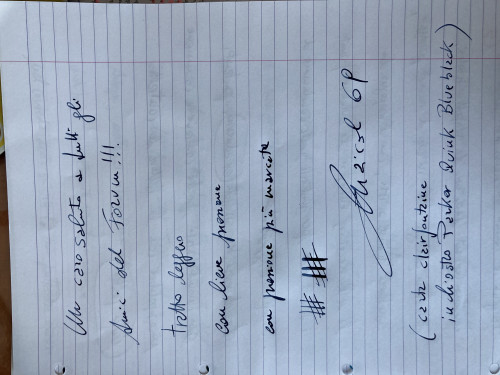 Un caro saluto a tutti gli
Amici del Forum!!!
tratto leggero
con lieve pressione
con pressione più marcata
(carta clairfontaine
inchiostro Parker Quink Blueblack)